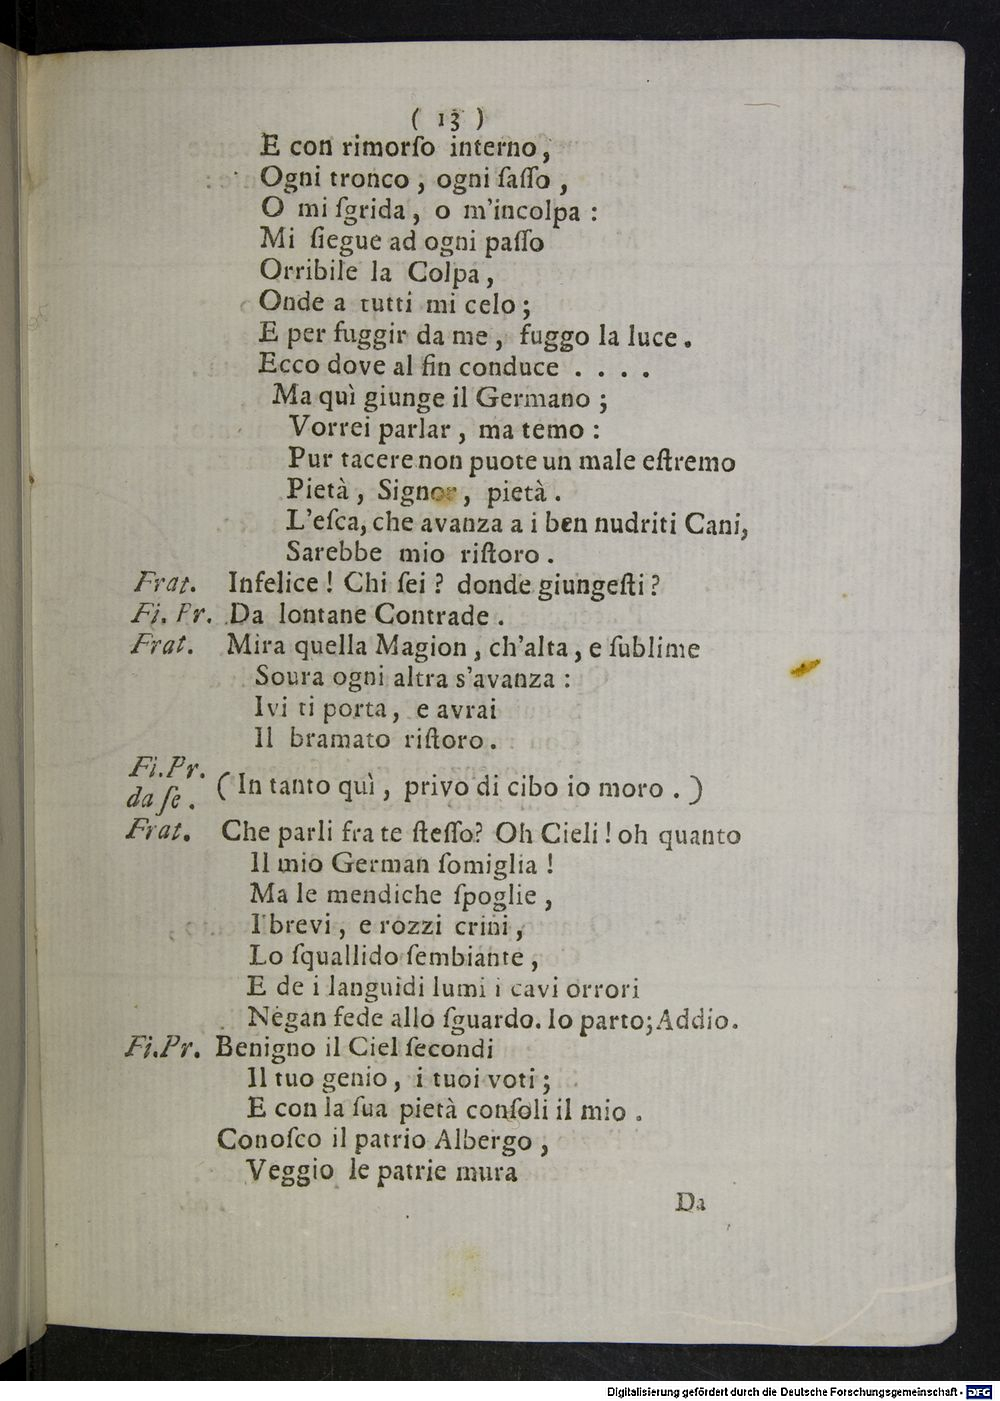 ( 13 )
E con rimorſo interno,
Ogni tronco, ogni ſaſſo,
O mi ſgrida, o m'incolpa:
Mi ſiegue ad ogni paſſo
Orribile la Colpa,
Onde a tutti mi celo;
E per fuggir da me, fuggo la luce.
Ecco dove al fin conduce . . . .
Ma quì giunge il Germano;
Vorrei parlar, ma temo:
Pur tacere non puote un male eſtremo
Pietà, Signor, pietà.
L'eſca, che avanza a i ben nudriti Cani,
Sarebbe mio riſtoro.
Frat. Infelice! Chi ſei? donde giungeſti?
Fi. Pr. Da lontane Contrade.
Frat. Mira quella Magion, ch'alta, e ſublime
Soura ogni altra s'avanza:
Ivi ti porta, e avrai
Il bramato riſtoro.
Fi. Pr. da ſe. (In tanto quì, privo di cibo io moro.)
Frat. Che parli fra te ſteſſo? Oh Cieli! oh quanto
Il mio German ſomiglia!
Ma le mendiche ſpoglie,
I brevi, e rozzi crini,
Lo ſquallido ſembiante,
E de i languidi lumi i cavi orrori
Négan fede allo ſguardo. Io parto; Addio.
Fi. Pr. Benigno il Ciel ſecondi
Il tuo genio, i tuoi voti;
E con la ſua pietà conſoli il mio.
Conoſco il patrio Albergo,
Veggio le patrie mura
Da
Digitalisierung gefördert durch die Deutsche Forschungsgemeinschaft - DFG